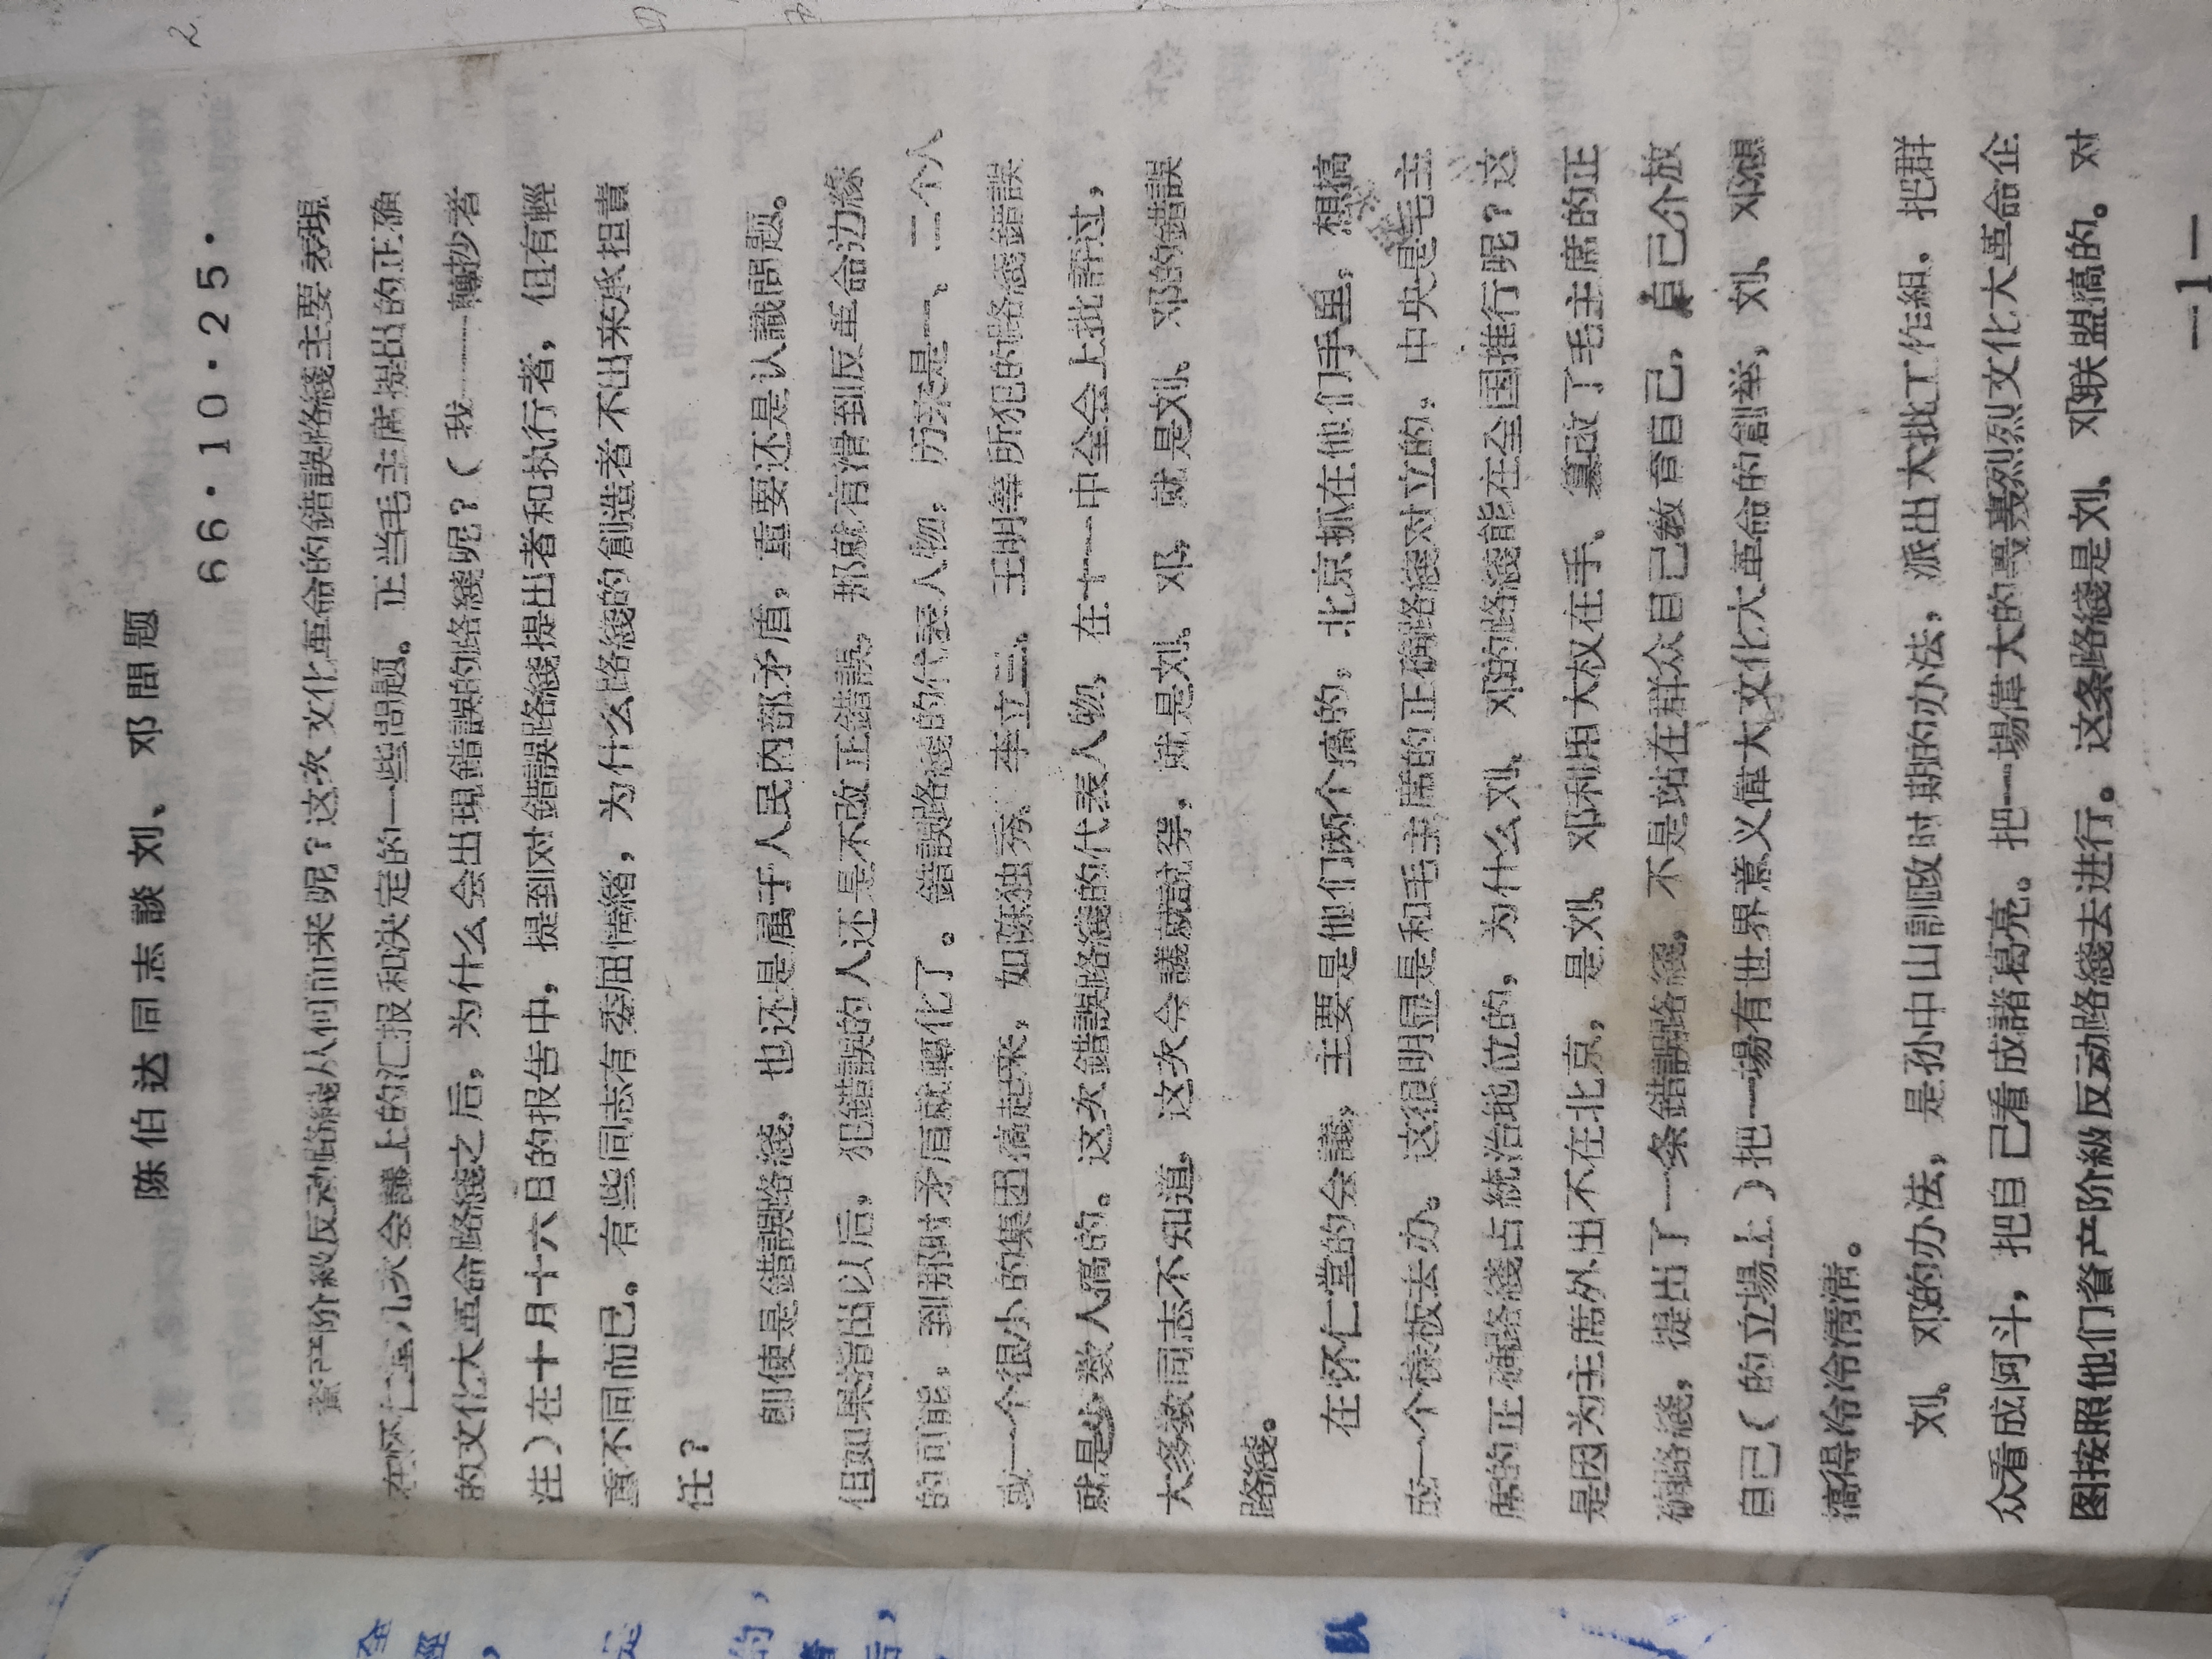 陈伯达同志談刘、邓問题
66·10·25·
資产阶級反动路綫从何而来呢？这次文化革命的錯誤路綫主要表現
在怀仁堂几次会議上的汇报和決定的一些問题。正当毛主席提出的正确
的文化大革命路綫之后，为什么会出現錯誤的路綫呢？（我——轉抄者
注）在十月十六日的报告中，提到对錯誤路綫提出者和执行者，但有輕
重不同而已。有些同志有委屈情緒，为什么路綫的創造者不出来承担責
任？
卽使是錯誤路綫，也还是属于人民内部矛盾，重要还是认識問题。
但如果指出以后，犯錯誤的人还是不改正錯誤，那就有滑到反革命边緣
的可能，到那时矛盾就轉化了。錯誤路綫的代表人物，历来是一、二个人
或一个很小的集团搞起来，如陈独秀、李立三、王明等所犯的路綫錯誤
就是少数人搞的。这次錯誤路綫的代表人物，在十一中全会上批評过，
大多数同志不知道，这次会議就說穿，就是刘、邓，就是刘、邓的錯誤
路綫。
在怀仁堂的会議，主要是他们两个搞的，北京抓在他们手里，想搞
成一个样板去办。这很明显是和毛主席的正确路綫对立的。中央是毛主
席的正确路綫占統治地位的，为什么刘、邓的路綫能在全国推行呢？这
是因为主席外出不在北京，是刘、邓利用大权在手、篡改了毛主席的正
确路綫，提出了一条錯誤路綫，不是站在群众自己教育自己，自己介放
自己（的立場上）把一場有世界意义偉大文化大革命的創举，刘、邓想
搞得冷冷清清。
刘、邓的办法，是孙中山訓政时期的办法，派出大批工作組，把群
众看成阿斗，把自己看成諸葛亮。把一場偉大的轰轰烈烈文化大革命企
图按照他们資产阶級反动路綫去进行。这条路綫是刘、邓联盟搞的。对
—1—
2
全
，
是
的，
者
后，
队